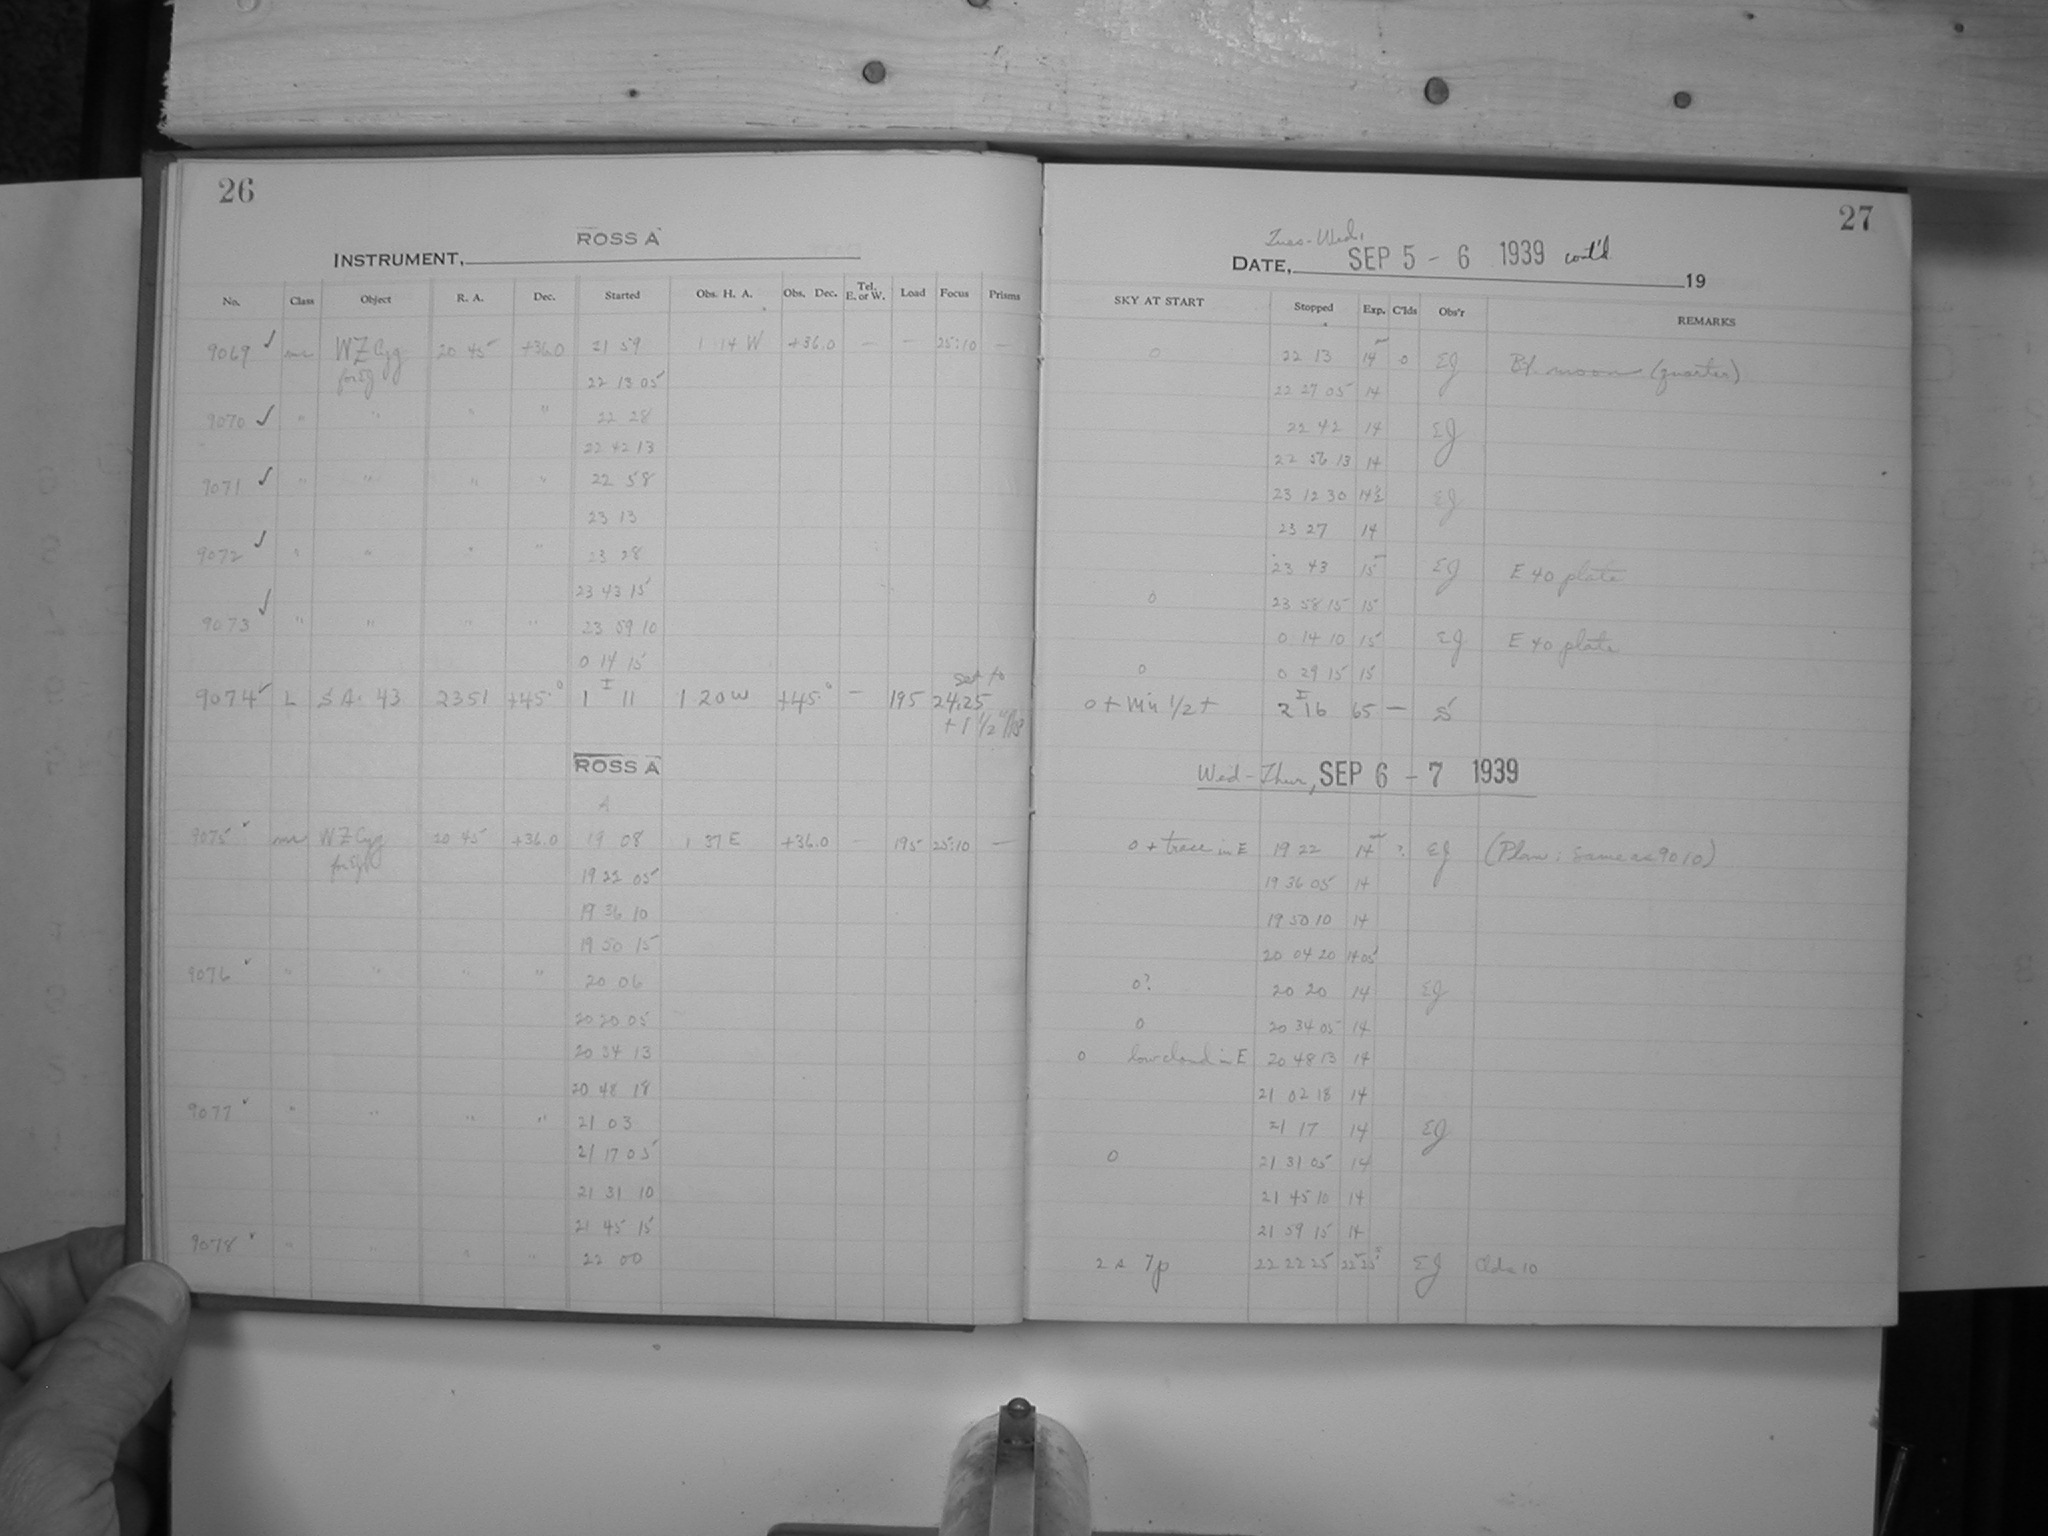 26
ROSS A
INSTRUMENT,
No. Class Object R. A. Dec. Started Obs. H. A. Obs. Dec. Tel. E. or W. Load Focus Prisms
9069 ✓ WZ Cyg 20 45 +36.0 21 59 1 14 W +36.0 — — 25:10 —
for EJ 22 13 05
9070 ✓ " " " " 22 28
22 42 13
9071 ✓ " " " " 22 58
23 13
9072 ✓ " " " " 23 28
23 43 15
9073 ✓ " " " " 23 59 10
0 14 15
set to
9074 ✓ L S A. 43 23 51 +45.° 1 11 1 20 W +45.° — 195 24.25
+ 1 1/2
ROSS A
A
9075 ✓ WZ Cyg 20 45 +36.0 19 08 1 37 E +36.0 — 195 25:10 —
for EJ 19 22 05
19 36 10
19 50 15
9076 ✓ " " " " 20 06
20 20 05
20 34 13
20 48 18
9077 ✓ " " " " 21 03
21 17 05
21 31 10
21 45 15
9078 ✓ " " " " 22 00
27
Tues-Wed.
DATE, SEP 5 - 6 1939 cont'd
19
SKY AT START Stopped Exp. C'lds Obs'r REMARKS
0 22 13 14 0 EJ Bt. moon (quarter)
22 27 05 14
22 42 14 EJ
22 56 13 14
23 12 30 14½ EJ
23 27 14
23 43 15 EJ E 40 plate
0 23 58 15 15
0 14 10 15 EJ E 40 plate
0 0 29 15 15
0 + 1/2 + 2 16 65 — S
Wed-Thur, SEP 6 - 7 1939
0 + trace in E 19 22 14 ? EJ (Plan: same as 9010)
19 36 05 14
19 50 10 14
20 04 20 14 05
0? 20 20 14 EJ
0 20 34 05 14
0 low cloud in E 20 48 13 14
21 02 18 14
21 17 14 EJ
0 21 31 05 14
21 45 10 14
21 59 15 14
2 s 7p 22 22 25 22 25 EJ Clds 10